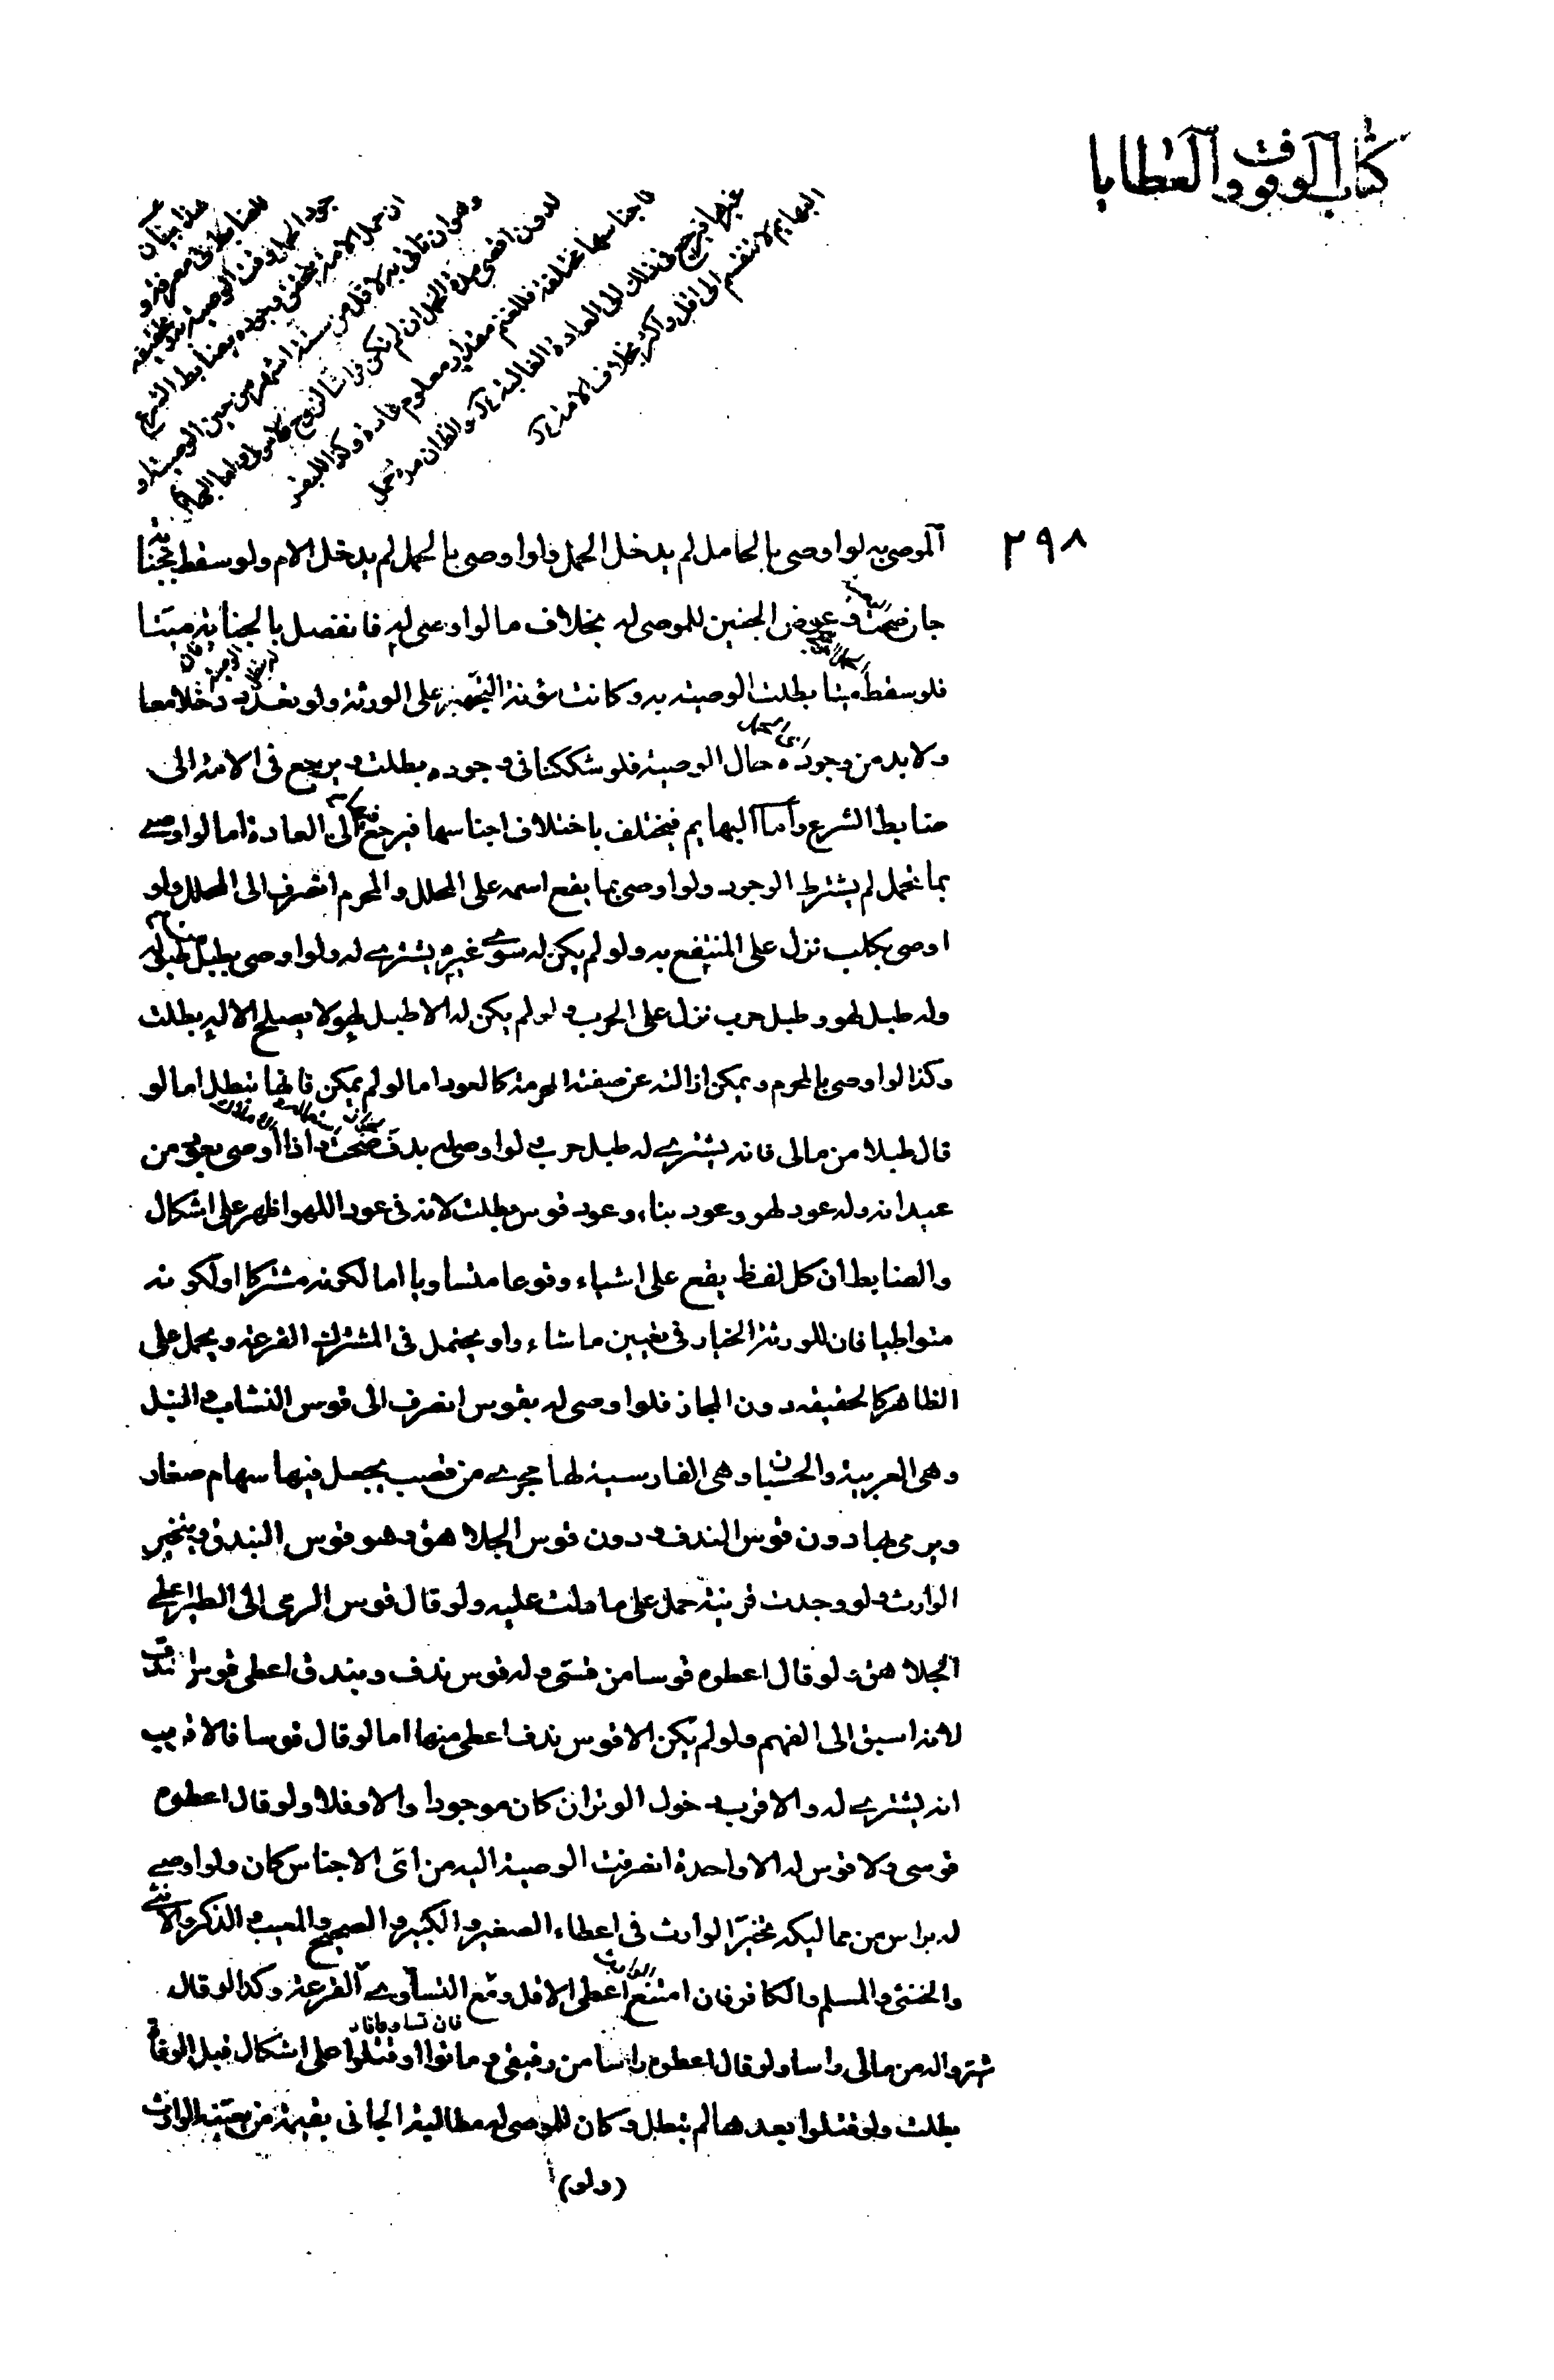 كتاب الوقوف والعطايا
هذا بيان
للضابط في معرفة و
جود الحمل وقت الوصية وتحقيقه
ان حمل الامة يتحقق وجوده بضابط الشرع
وهو ان تاتي به لاقل من ستة اشهر من حين الوصية او
لدون اقصى مدة الحمل ان لم تكن فراشا لزوج او مولى واما البهائم
فاجناسها مختلفة فللغنم مقدار معلوم عادة وكذا للبقر
غيرها فيرجع في ذلك الى العادة الغالبة والظاهر ان مدة حمل
البهايم لا تنقسم الى اقل واكثر بخلاف الامة
٢٩٨
الموصى به لو اوصى بالحامل لم يدخل الحمل ولو اوصى بالحمل لم يدخل الام ولو سقط بجناية
جان صحت وعوض الجنين للموصى له بخلاف ما لو اوصى له فانفصل بالجناية ميتا
فلو سقط ميتا بطلت الوصية به وكانت مؤنة التجهيز على الورثة ولو تعدد دخلا معا
ولا بد من وجوده حال الوصية فلو شككنا في وجوده بطلت ويرجع في الامة الى
ضابط الشرع واما البهايم فيختلف باختلاف اجناسها فيرجع فيه الى العادة اما لو اوصى
بما تحمل لم يشترط الوجود ولو اوصى بما يقع اسمه على المحلل والمحرم انصرف الى المحلل ولو
اوصى بكلب نزل على المنتفع به ولو لم يكن له سوى غيره يشترى له ولو اوصى بطبل من طبوله
وله طبل لهو وطبل حرب نزل على الحرب ولو لم يكن له الا طبل لهو لا يصلح الا له بطلت
وكذا لو اوصى بالمحرم ويمكن ازالته عن صفته المحرمة كالعود اما لو لم يمكن فانها تبطل اما لو
قال طبلا من مالي فانه يشترى له طبل حرب ولو اوصى له بدف صحت واذا اوصى بعود من
عيدانه وله عود لهو وعود بناء وعود قوس بطلت لانه في عود اللهو اظهر على اشكال
والضابط ان كل لفظ يقع على اشياء وقوعا متساويا اما لكونه مشتركا او لكونه
متواطيا فان للورثة الخيار في تعيين ما شاءوا ويحتمل في المشترك القرعة ويحمل على
الظاهر كالحقيقه دون المجاز فلو اوصى له بقوس انصرف الى قوس النشاب والنبل
وهي العربية والحسبان وهي الفارسية لها مجرى من قصب يجعل فيها سهام صغار
ويرمى بها دون قوس الندف ودون قوس الجلاهق وهو قوس البندق ويتخير
الوارث ولو وجدت قرينة حمل على ما دلت عليه ولو قال قوس الرمى الى الطير اعطى
الجلاهق ولو قال اعطوه قوسا من قسىّ وله قوس ندف وبندق اعطى قوس البندق
لانه اسبق الى الفهم ولو لم يكن الا قوس ندف اعطى منها اما لو قال قوسا فالاقرب
انه يشترى له والاقرب دخول الوتر ان كان موجودا والا فلا ولو قال اعطوه
قوسى ولا قوس له الا واحدة انصرفت الوصية اليه من اى الاجناس كان ولو اوصى
له براس من مماليكه تخيّر الوارث في اعطاء الصغير والكبير والصحيح والمعيب والذكر والانثى
والخنثى والمسلم والكافر فان امتنع الوارث اعطى الاقل ومع التساوى القرعة وكذا لو قال
اشتروا له من مالى راسا ولو قال اعطوه راسا من رقيقى وماتوا او قتلوا على اشكال قبل الوفاة
بطلت ولو قتلوا بعدها لم تبطل وكان للموصى له مطالبة الجانى بقيمة من يعينه الوارث
(ولو)